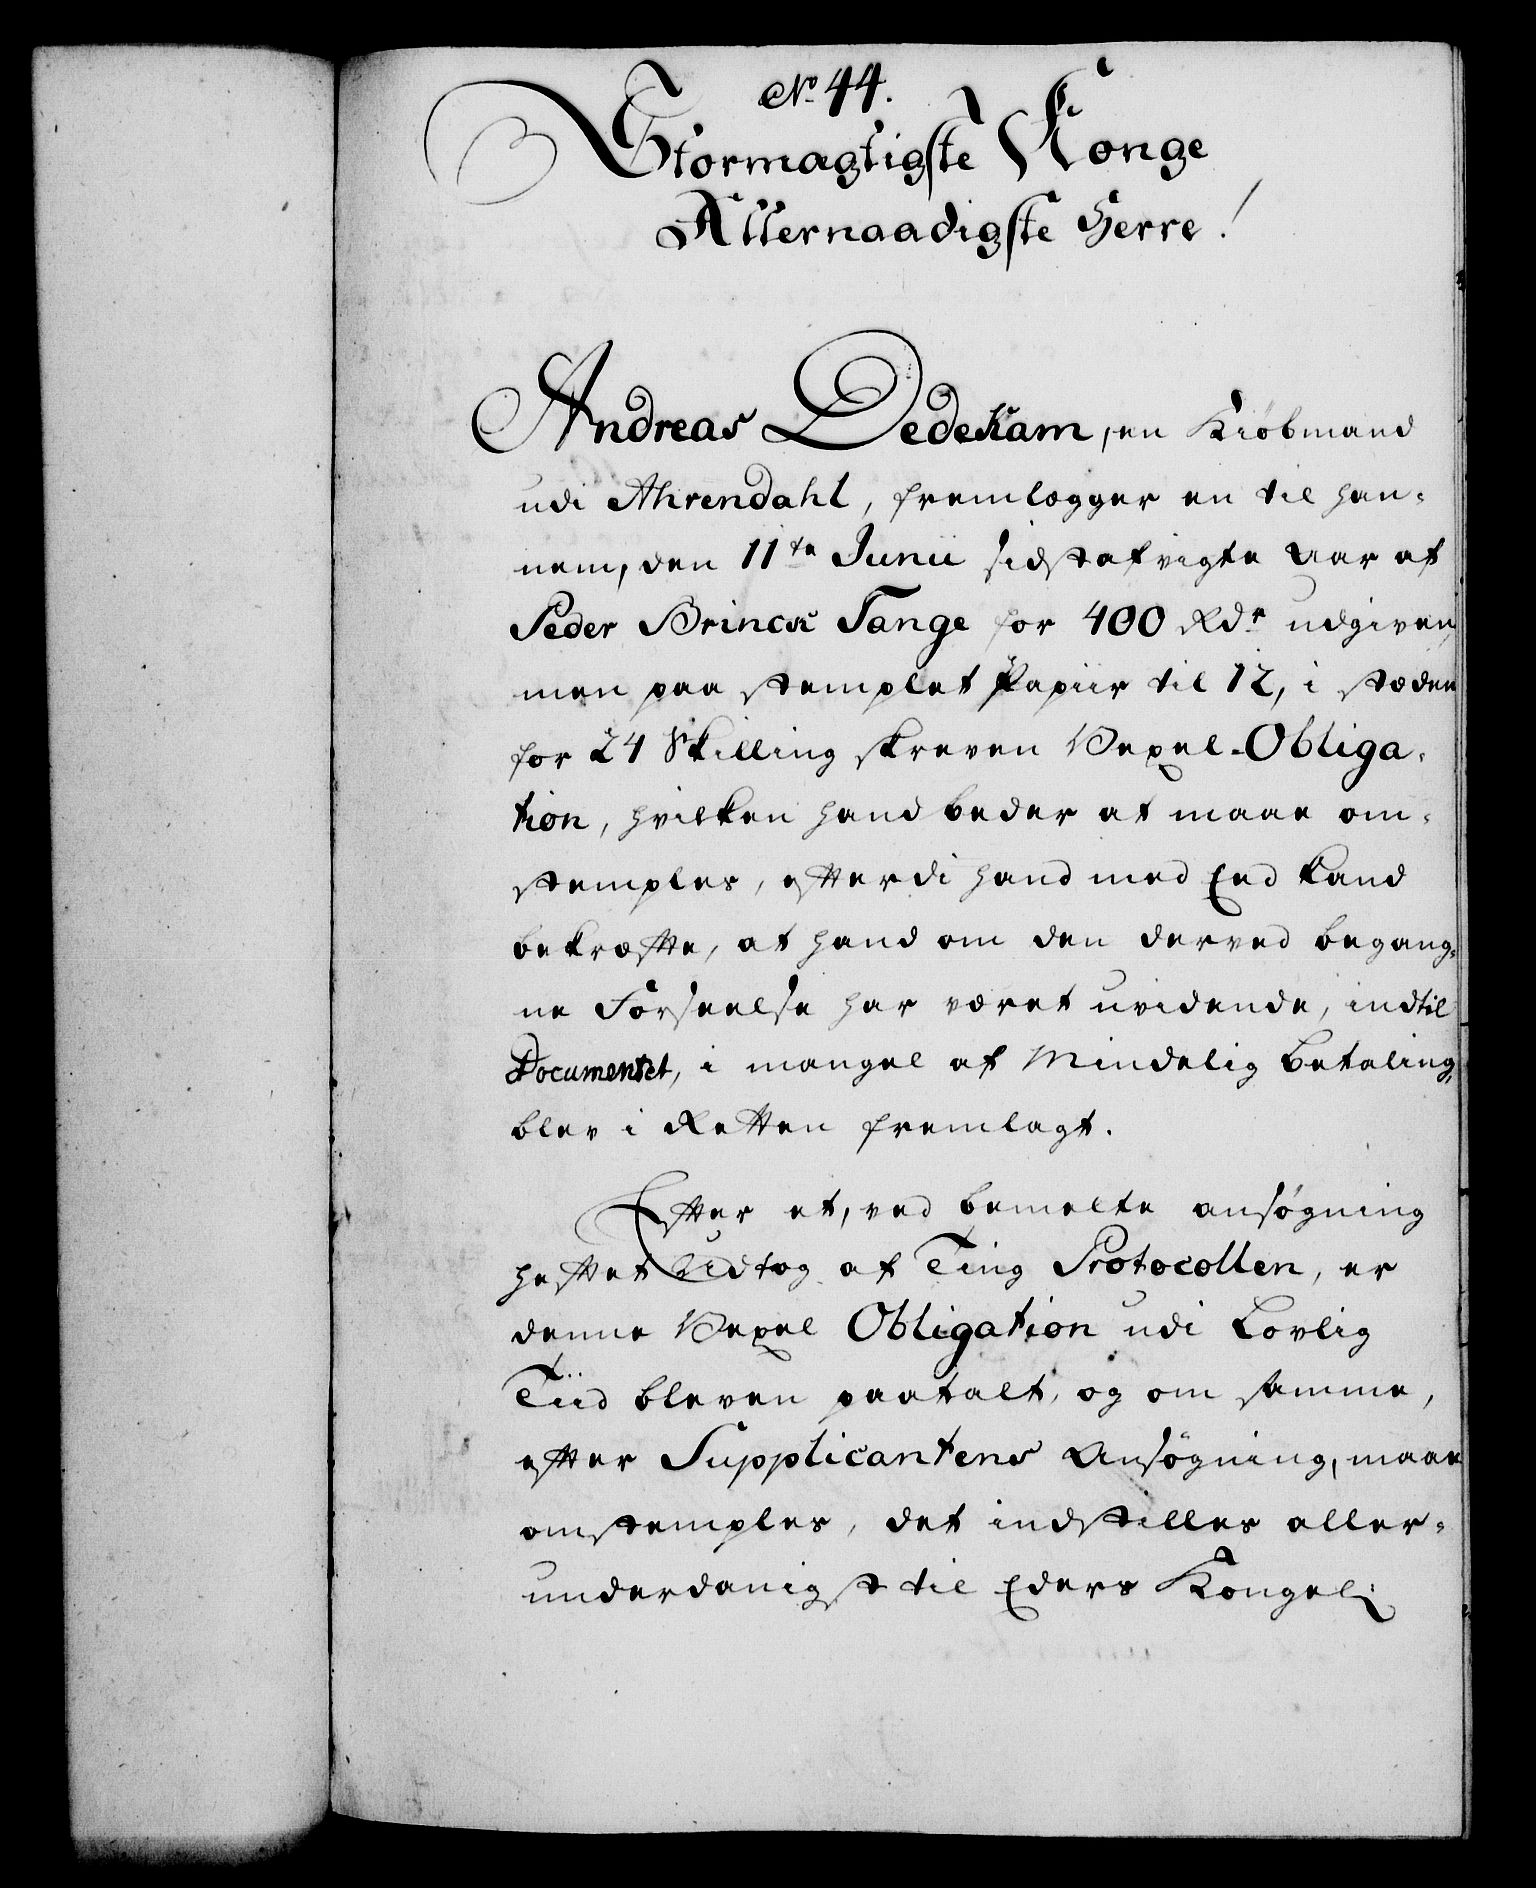 No 44.
Stormægtigste Konge
Allernaadigste Herre!
Andreas Dedekam, en Kiøbmand
udi Ahrendahl, fremlægger en til han-
nem, den 11te Junii sidstafvigte Aar af
Peder Brinck Tange for 400 Rdr udgiven,
men paa stemplet Papiir til 12, i stæden
for 24 Skilling skreven Vexel-Obliga-
tion, hvilken hand beder at maae om-
stemples, efterdi hand med Eed kand
bekræfte, at hand om den derved begang-
ne Forseelse har været uvidende, indtil
Documentet, i mangel af Mindelig betaling,
blev i Retten fremlagt.
Efter et, ved bemelte ansøgning
heftet Udtog af Ting Protocollen, er
denne Vexel Obligation udi Lovlig
Tiid bleven paatalt, og om samme,
efter Supplicantens Ansøgning, maae
omstemples, det indstilles aller-
underdanigst til Eders Kongel: